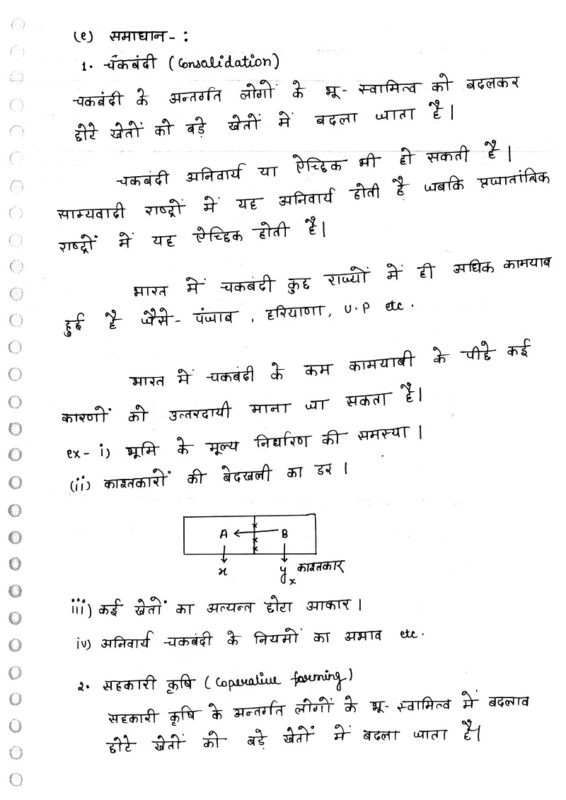 (e) समाधान - :
1. चकबंदी (Consalidation)
चकबंदी के अन्तर्गत लोगों के भू- स्वामित्व को बदलकर
छोटे खेतों को बड़े खेतों में बदला जाता है।
चकबंदी अनिवार्य या ऐच्छिक भी हो सकती है।
साम्यवादी राष्ट्रों में यह अनिवार्य होती है जबकि प्रजातांत्रिक
राष्ट्रों में यह ऐच्छिक होती है।
भारत में चकबंदी कुछ राज्यों में ही अधिक कामयाब
हुई है जैसे- पंजाब , हरियाणा, U.P etc.
भारत में चकबंदी के कम कामयाबी के पीछे कई
कारणों को उत्तरदायी माना जा सकता है।
ex- i) भूमि के मूल्य निर्धारण की समस्या।
(ii) काश्तकारों की बेदखली का डर।
A ← B
x y x काश्तकार
iii) कई खेतों का अत्यन्त छोटा आकार।
iv) अनिवार्य चकबंदी के नियमों का अभाव etc.
2. सहकारी कृषि (Coperative farming)
सहकारी कृषि के अन्तर्गत लोगों के भू- स्वामित्व में बदलाव
छोटे खेतों को बड़े खेतों में बदला जाता है।